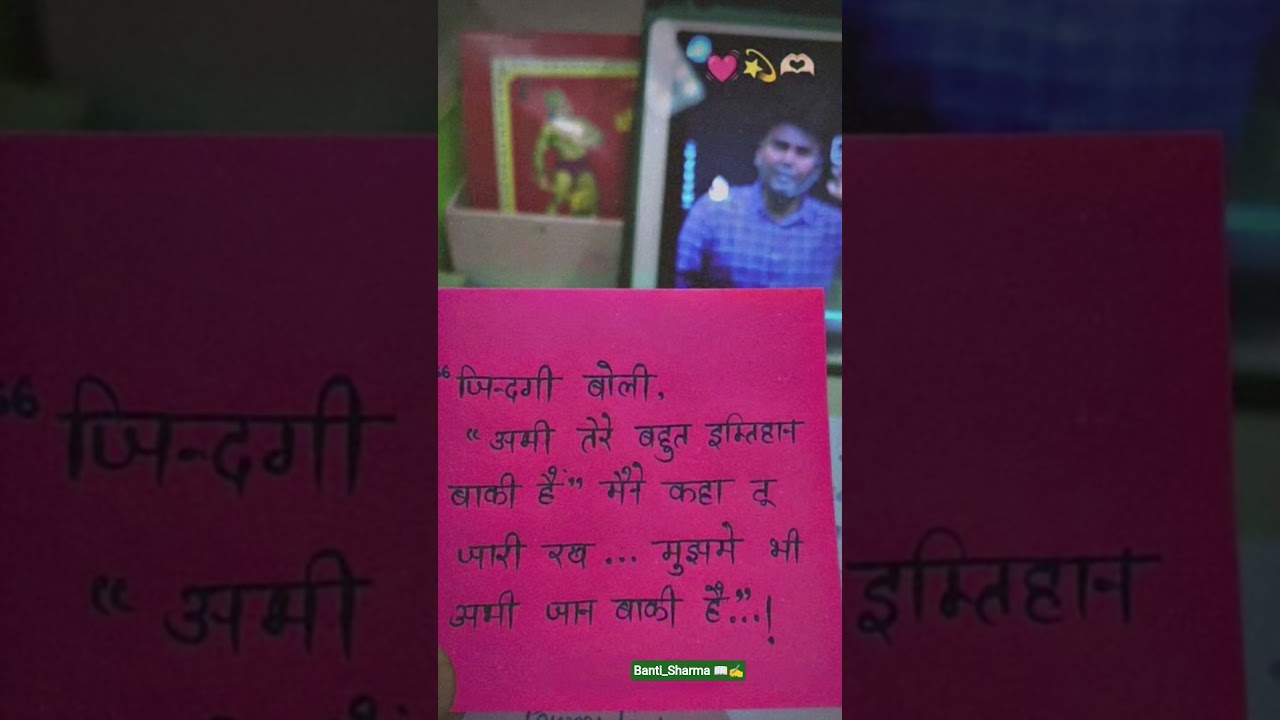 “जिन्दगी बोली,
“अभी तेरे बहुत इम्तिहान
बाकी हैं” मैंने कहा तू
जारी रख... मुझमे भी
अभी जान बाकी है”...!
Banti_Sharma 📖✍️